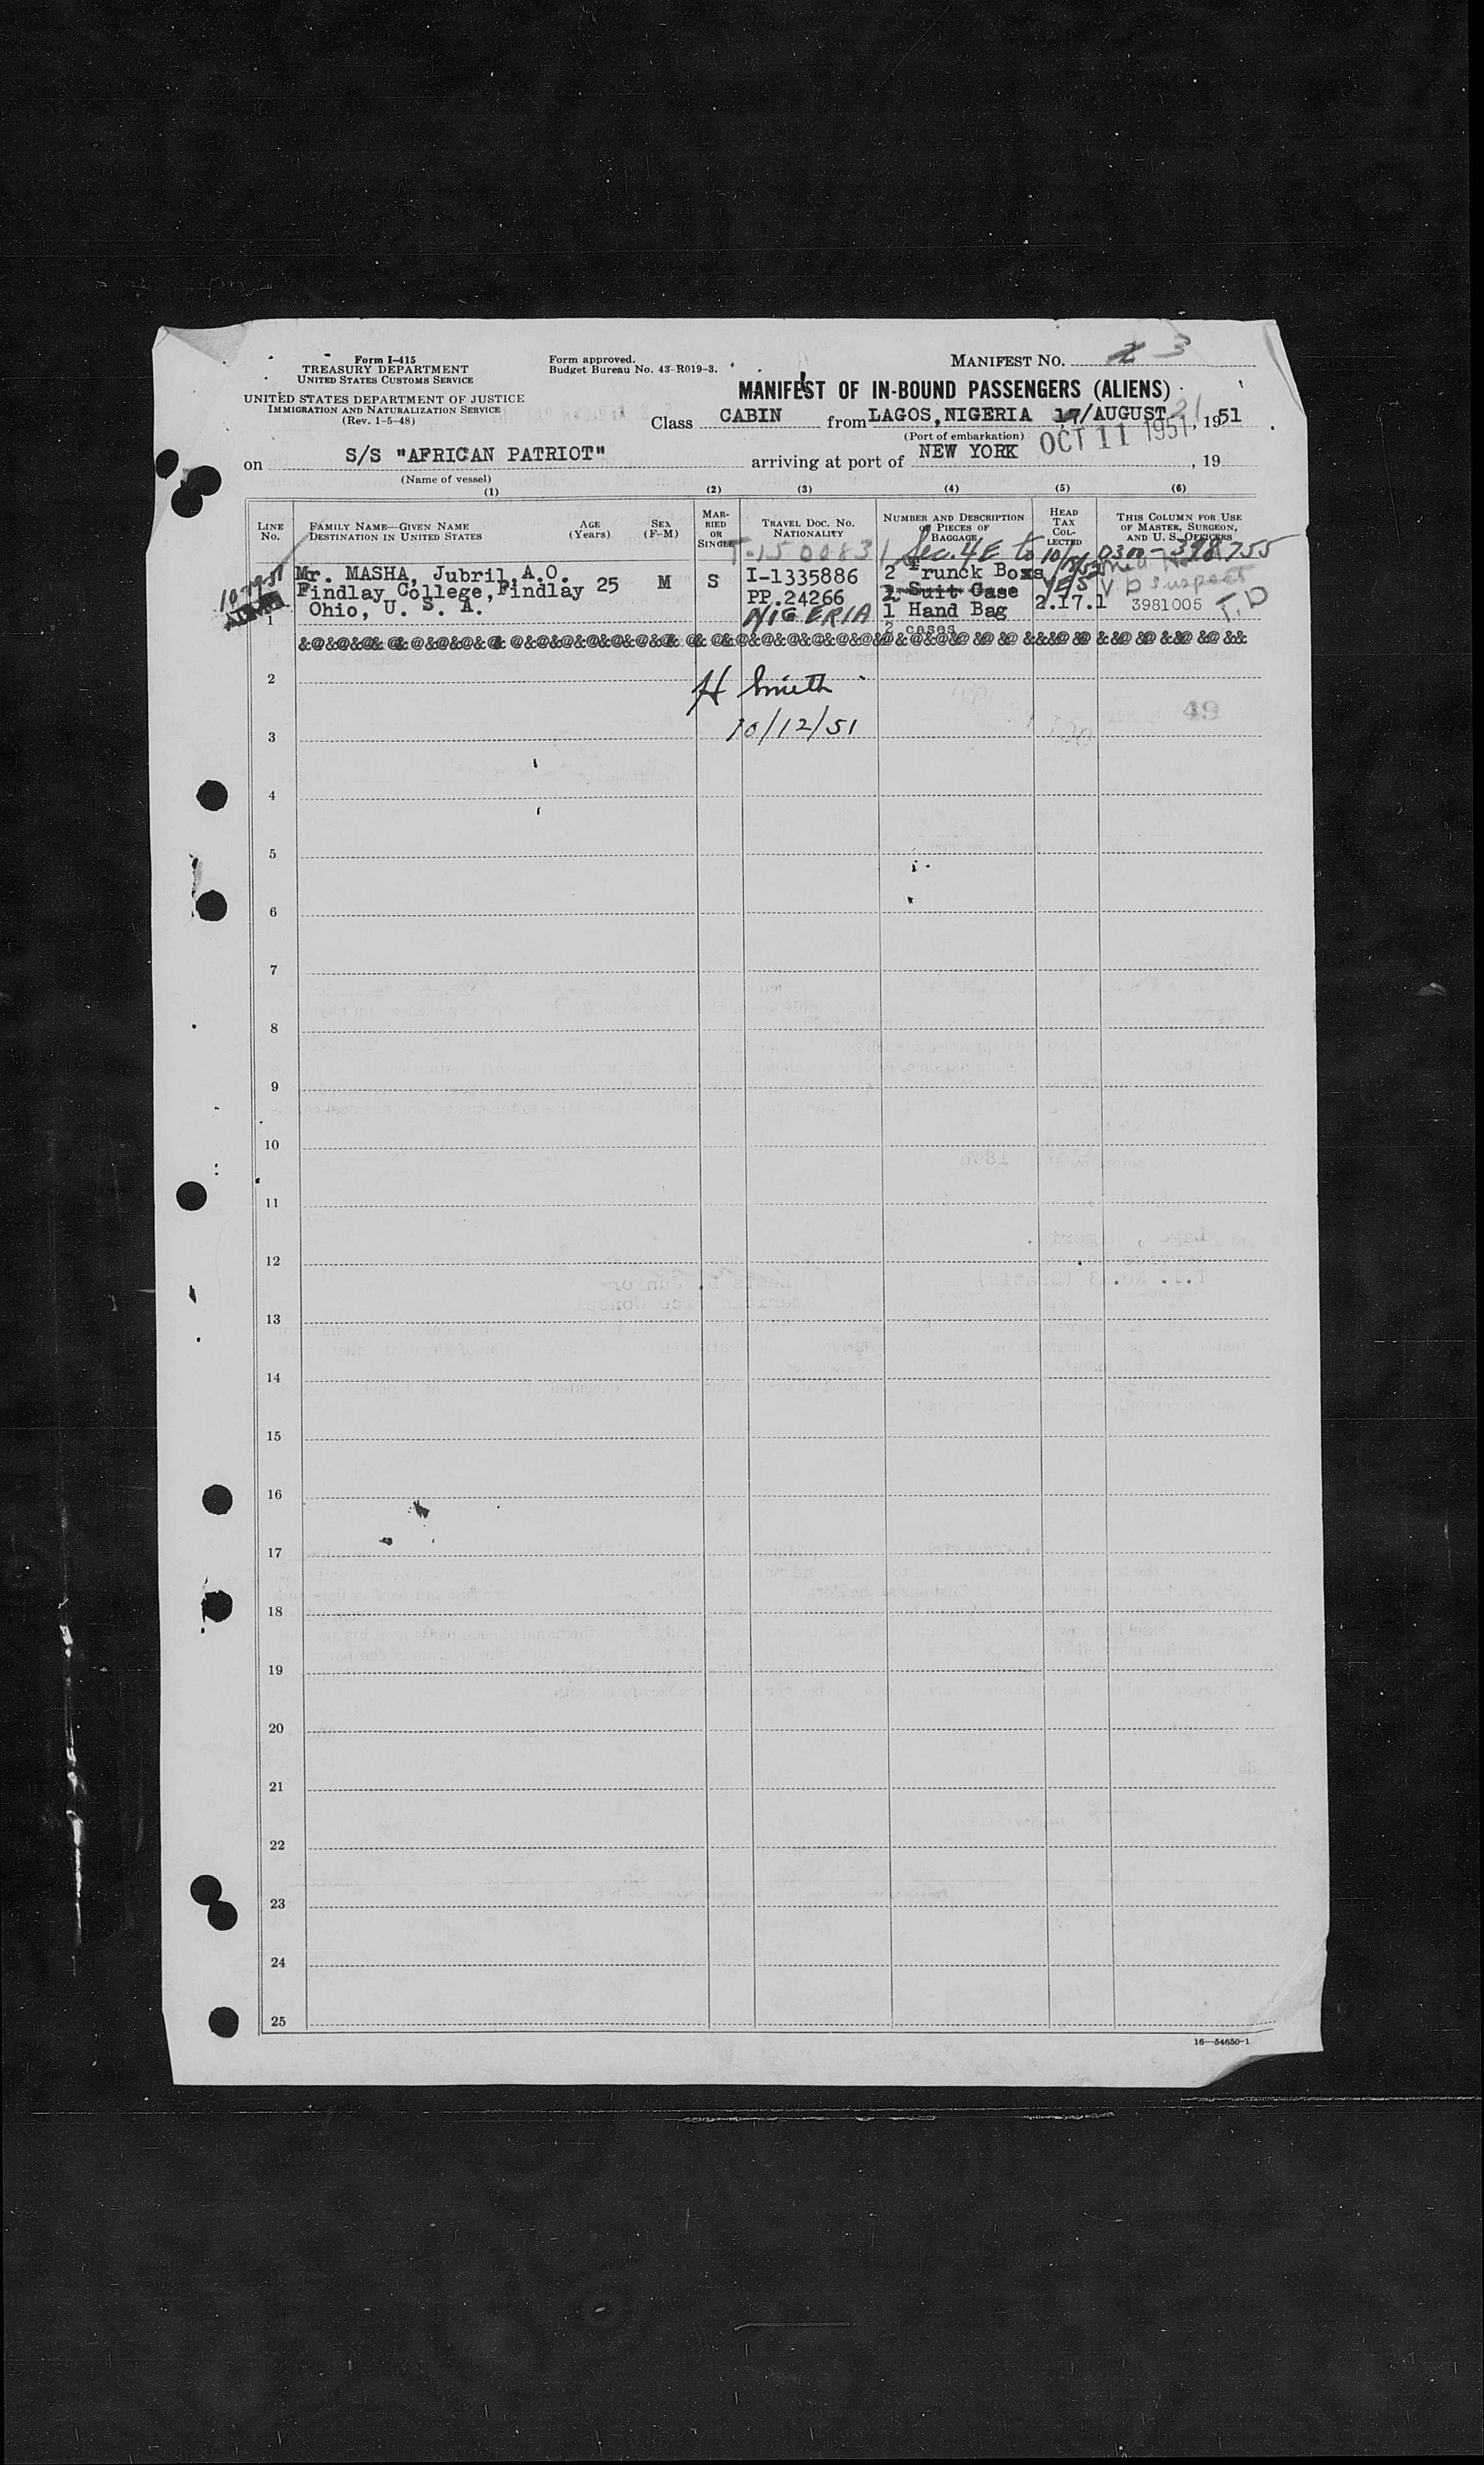 Form I-415
TREASURY DEPARTMENT
UNITED STATES CUSTOMS SERVICE
UNITED STATES DEPARTMENT OF JUSTICE
IMMIGRATION AND NATURALIZATION SERVICE
(Rev. 1-5-48)
Form approved.
Budget Bureau No. 43-R019-3.
MANIFEST No. 2 3
MANIFEST OF IN-BOUND PASSENGERS (ALIENS)
Class CABIN from LAGOS, NIGERIA 17/AUGUST 21, 1951
(Port of embarkation)
OCT 11 1951
on S/S "AFRICAN PATRIOT" arriving at port of NEW YORK, 19
(Name of vessel)
(1) (2) (3) (4) (5) (6)
LINE No.
FAMILY NAME—GIVEN NAME
DESTINATION IN UNITED STATES
AGE (Years)
SEX (F-M)
MARRIED OR SINGLE
TRAVEL DOC. No. NATIONALITY
NUMBER AND DESCRIPTION OF PIECES OF BAGGAGE
HEAD TAX COLLECTED
THIS COLUMN FOR USE OF MASTER, SURGEON, AND U. S. OFFICERS
T-1500831 Sec. 4E to 0300-398755
10-19-51
Mr. MASHA, Jubril, A.O. 25 M S I-1335886 2 Trunck Boxs YES V D suspect
Findlay College, Findlay PP.24266 1 Suit Case
Ohio, U. S. A. NIGERIA 1 Hand Bag 2.17.1 3981005 T.D
1 2 cases
&@&@&@&& @& @&@&@&@ @& @&@&@&@&@&@&@&@& @& @&@&@&@&@&@&@&@&@&@ &@&@&@ &@ &@ &&&@ &@ & &@ &@ &@ &@ &&
2
H Smith
10/12/51
49
3
4
5
6
7
8
9
10
11
12
13
14
15
16
17
18
19
20
21
22
23
24
25
16—54650-1